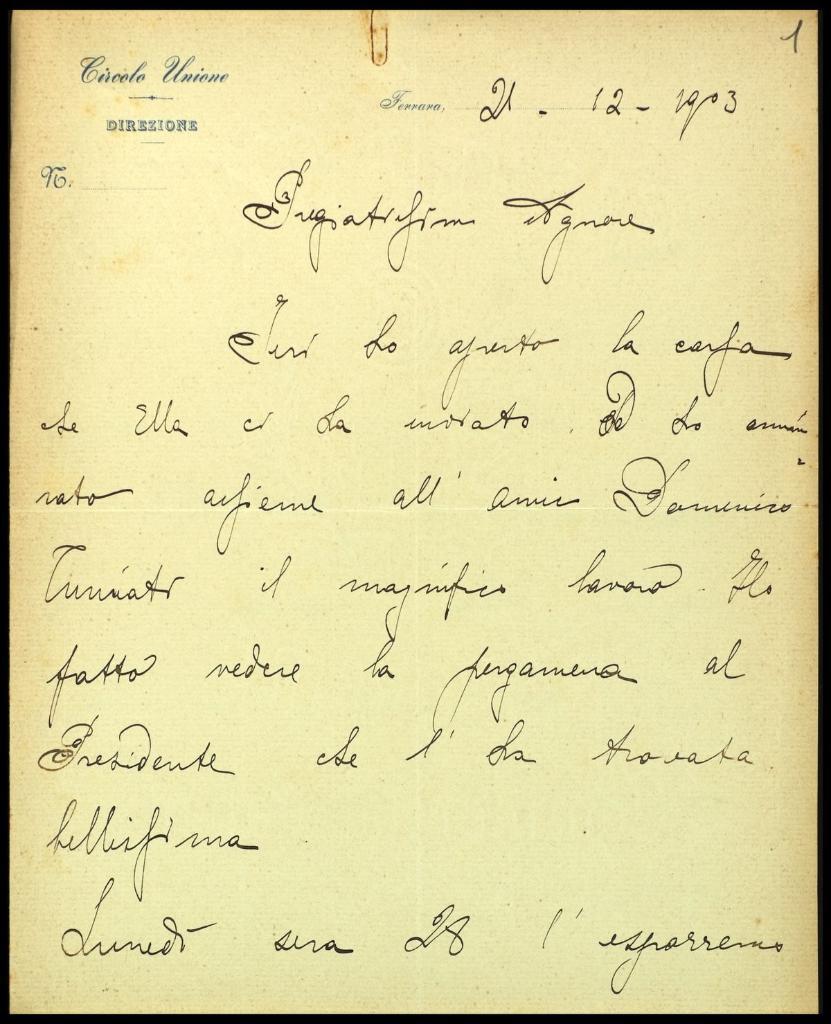 1
Circolo Unione
DIREZIONE
Ferrara, 21 - 12 - 1903
N.
Pregiatissimo Signore
Ieri ho aperto la cassa
che Ella ci ha inviato. Ed ho ammi-
rato assieme all' amico Domenico
Tumiati il magnifico lavoro. Ho
fatto vedere la pergamena al
Presidente che l' ha trovata
bellissima
Lunedì sera 28 l' esporremo